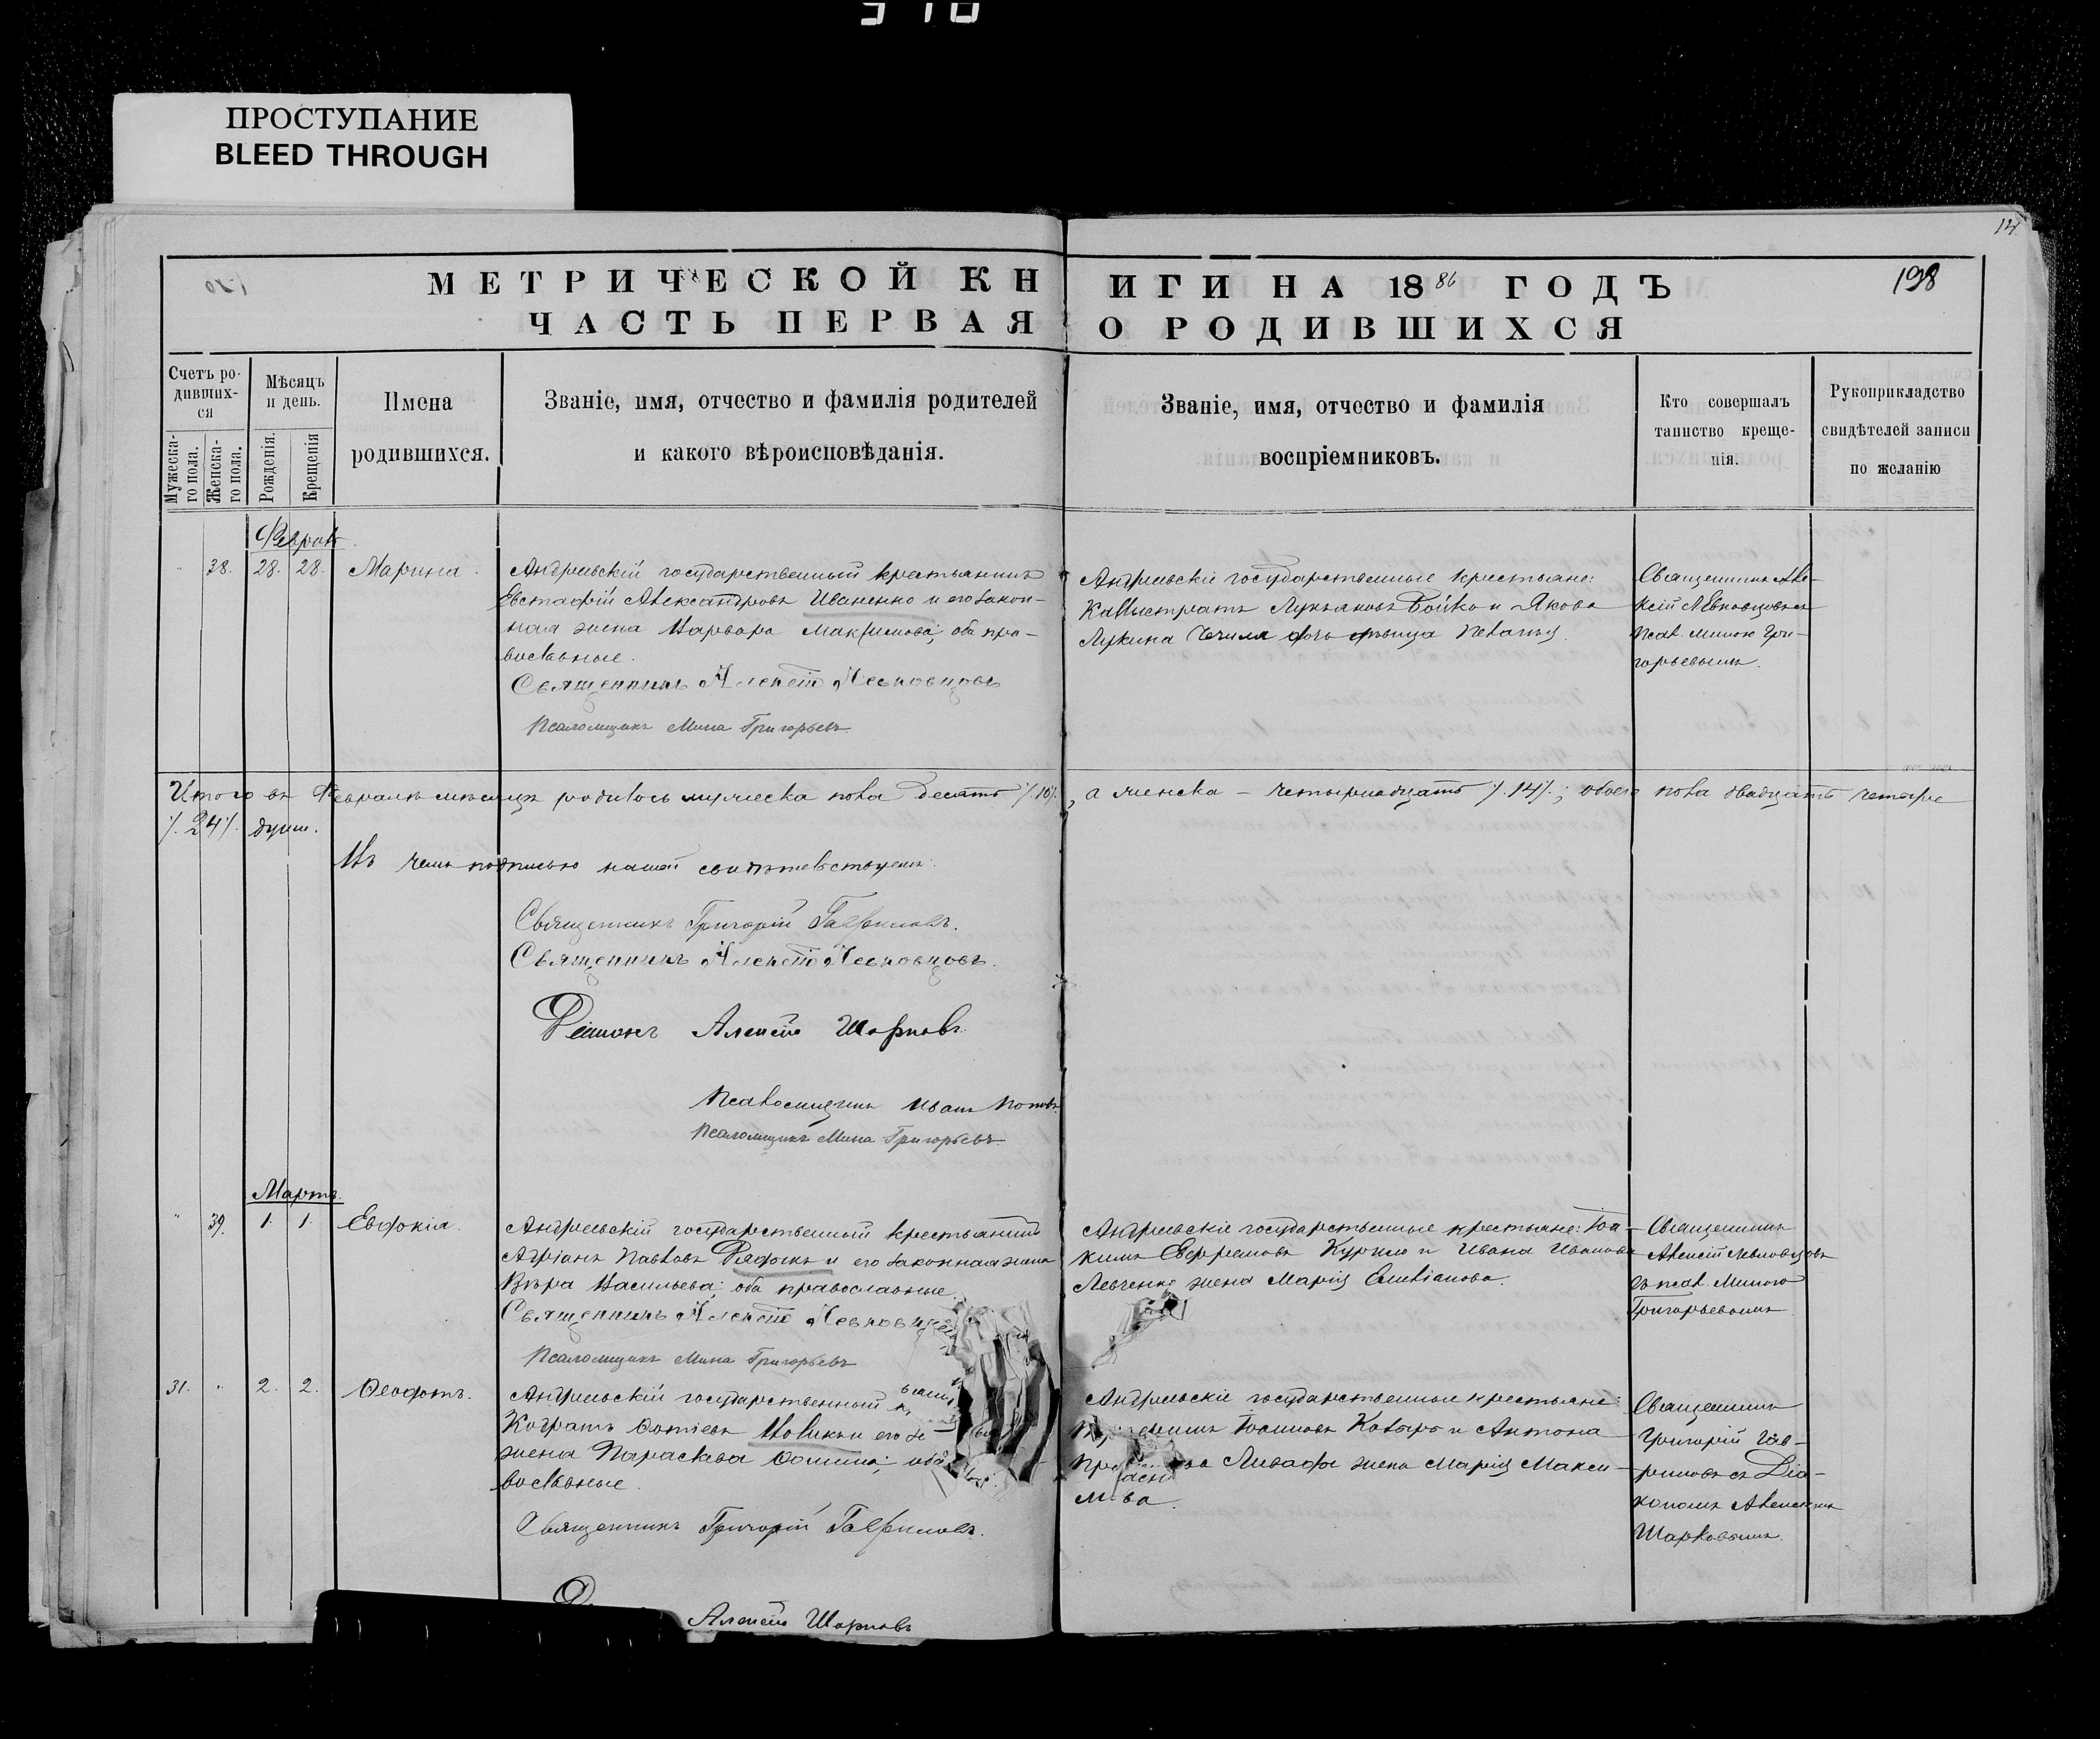 ПРОСТУПАНИЕ
BLEED THROUGH
14
198
МЕТРИЧЕСКОЙ КНИГИ НА 1886 ГОДЪ
ЧАСТЬ ПЕРВАЯ О РОДИВШИХСЯ
Счетъ ро-
дивших-
ся
Мужеска-
го пола.
Женска-
го пола.
Мѣсяцъ
и день.
Рожденія.
Крещенія
Имена
родившихся.
Званіе, имя, отчество и фамилія родителей
и какого вѣроисповѣданія.
Званіе, имя, отчество и фамилія
воспріемниковъ.
Кто совершалъ
таинство креще-
нія.
Рукоприкладство
свидѣтелей записи
по желанію
38. 28. 28. Марина.
Андреевскій государственный крестьянинъ
Евстафій Александровъ Иваненко и его закон-
ная жена Варвара Максимова; оба пра-
вославные.
Священникъ Алексій
Псаломщикъ Мина Григорьевъ
Андреевскіе государственные крестьяне:
Каллистратъ Лукьяновъ Бойко и Якова
Лукина дочь дѣвица
Священникъ Але-
ксій
псал. Миною Гри-
горьевымъ.
Итого въ Февралѣ мѣсяцѣ родилось мужеска пола десять /.10/., а женска – четырнадцать /.14/.; обоего пола двадцать четыре
/.24/. душ.
Въ чемъ подписью нашей свидѣтельствуемъ:
Священникъ Григорій Гавриловъ.
Священникъ Алексій
Діаконъ Алексій Шарковъ
Псаломщикъ Иванъ Поповъ
Псаломщикъ Мина Григорьевъ
Мартъ.
39. 1. 1. Евдокія.
Андреевскій государственный крестьянинъ
Адріанъ Павловъ и его законная жена
Вѣра Васильева; оба православные.
Священникъ Алексій
Псаломщикъ Мина Григорьевъ
Андреевскіе государственные крестьяне: Іоа-
кимъ Ефремовъ и Ивана Иванова
Левченко жена Марія Емеліанова.
Священникъ
Алексій
съ псал. Миною
Григорьевымъ
31. 2. 2. Ѳеодотъ.
Андреевскій государственный
Кодратъ Ѳотіевъ Новикъ и его за-
жена Параскева Ѳомина; оба
вославные.
Священникъ Григорій Гавриловъ.
Алексій Шарковъ
Андреевскіе государственные крестьяне:
Іоанновъ и Антона
жена Марія Макси-
мова.
Священникъ
Григорій Гав-
риловъ съ Діа-
кономъ Алексіемъ
Шарковымъ.